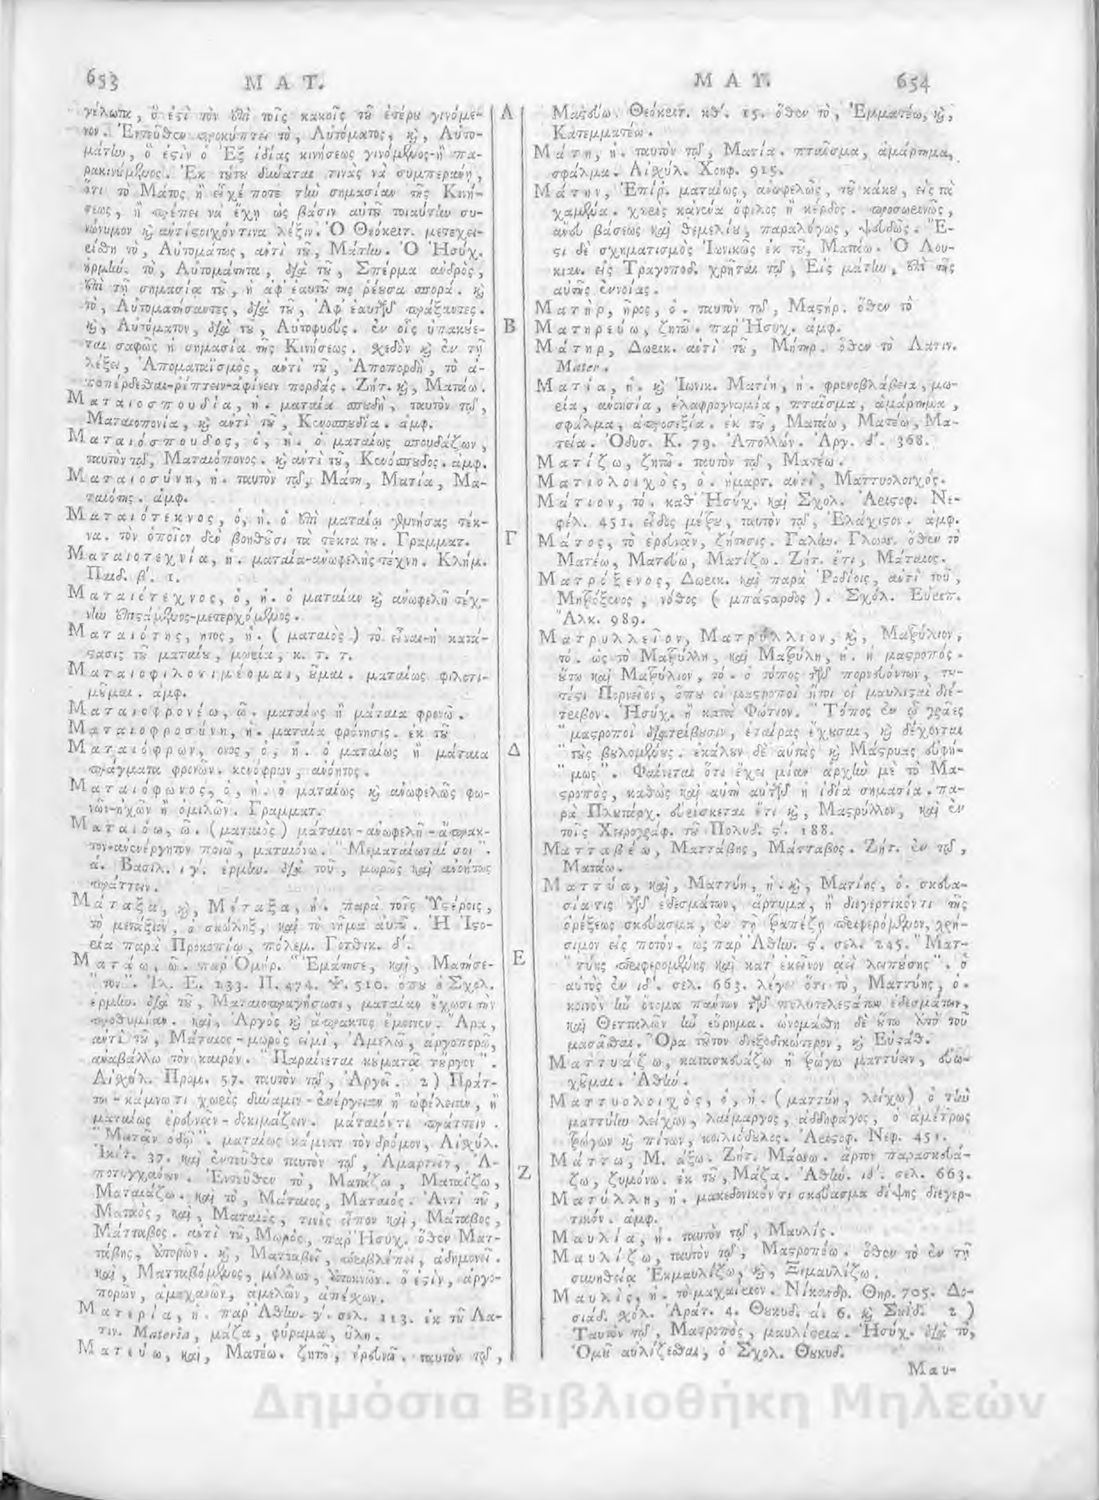 653 ΜΑΤ.
γέλωτα, ὅ ἐστὶ τὸν ἐπὶ τοῖς κακοῖς τοῦ ἑτέρου γινόμε-
νον. Ἐντεῦθεν προκύπτει τὸ, Αὐτόματος, καὶ, Αὐτο-
μάτην, ὅ ἐστὶν ὁ Ἐξ ἰδίας κινήσεως γινόμενος-ἢ πα-
ρακινούμενος. Ἐκ τούτου δύναται τινὰς νὰ συμπεράνῃ,
ὅτι τὸ Μάτος ἢ εἶχέ ποτε τὴν σημασίαν τῆς Κινή-
σεως, ἢ πρέπει νὰ ἔχῃ ὡς βάσιν αὐτοῦ τοιαύτην συ-
νώνυμον καὶ ἀντίστοιχόν τινα λέξιν. Ὁ Θεόκριτ. μετεχει-
ρίσθη τὸ, Αὐτομάτως, ἀντὶ τοῦ, Μάτην. Ὁ Ἡσύχ.
ἑρμην. τὸ, Αὐτοματητα, διὰ τοῦ, Σπέρμα ἀνδρὸς,
ἐπὶ τῇ σημασίᾳ τοῦ, ἡ ἀφ' ἑαυτοῦ της ῥέουσα σπορά. καὶ
τὸ, Αὐτοματήσαντες, διὰ τοῦ, Ἀφ' ἑαυτῶν πράξαντες.
καὶ, Αὐτόματον, διὰ τοῦ, Αὐτοφυοῦς. ἐν οἷς ὑπακούε-
ται σαφῶς ἡ σημασία τῆς Κινήσεως. σχεδὸν καὶ ἐν τῇ
λέξει, Ἀποματαϊσμὸς, ἀντὶ τοῦ, Ἀποπορδὴ, τὸ ἀ-
ποπέρδεσθαι-ρίπτειν-ἀφίνειν πορδάς. Ζήτ. καὶ, Ματάω.
Ματαιοσπουδία, ἡ. ματαία σπουδὴ, ταυτὸν τῷ,
Ματαιοπονία, καὶ ἀντὶ τοῦ, Κενοσπουδία. ἀμφ.
Ματαιόσπουδος, ὁ, ἡ. ὁ ματαίως σπουδάζων,
ταυτὸν τῷ, Ματαιόπονος. καὶ ἀντὶ τοῦ, Κενόσπουδος. ἀμφ.
Ματαιοσύνη, ἡ. ταυτὸν τῷ, Μάτη, Ματία, Μα-
ταιότης. ἀμφ.
Ματαιότεκνος, ὁ, ἡ. ὁ ἐπὶ ματαίῳ γεννήσας τέκ-
να. τὸν ὁποῖον δὲν βοηθοῦσι τὰ τέκνα του. Γραμματ.
Ματαιοτεχνία, ἡ. ματαία-ἀνωφελὴς τέχνη. Κλήμ.
Παιδ. β'. 1.
Ματαιότεχνος, ὁ, ἡ. ὁ ματαίαν καὶ ἀνωφελῆ τέχ-
νην ἐπιστάμενος-μετερχόμενος.
Ματαιότης, ητος, ἡ. (ματαιὸς) τὸ εἶναι-ἡ κατά-
στασις τοῦ ματαίου, μωρία, κ. τ. τ.
Ματαιοφιλοτιμέομαι, οῦμαι. ματαίως φιλοτι-
μοῦμαι. ἀμφ.
Ματαιοφρονέω, ῶ. ματαίως ἢ μάταια φρονῶ.
Ματαιοφροσύνη, ἡ. ματαία φρόνησις. ἐκ τοῦ
Ματαιόφρων, ονος, ὁ, ἡ. ὁ ματαίως ἢ μάταια
πράγματα φρονῶν. κενόφρων, ἀνόητος.
Ματαιόφωνος, ὁ, ἡ. ὁ ματαίως καὶ ἀνωφελῶς φω-
νῶν-ἠχῶν ἢ ὁμιλῶν. Γραμματ.
Ματαιόω, ῶ. (ματαιὸς) μάταιον-ἀνωφελῆ-ἄπρακ-
τον-ἀνενέργητον ποιῶ, ματαιόνω. "Μεματαίωταί σοι".
ά. Βασιλ. ιγ'. ἑρμην. διὰ τοῦ, μωρῶς καὶ ἀνόητως
πράττειν.
Μάταξα, καὶ, Μέταξα, ἡ. παρὰ τοῖς Ὑστέροις,
τὸ μετάξιον, ὁ σκώληξ, καὶ τὸ νῆμα αὐτοῦ. Ἡ Ἱστο-
ρία παρὰ Προκοπίῳ, πόλεμ. Γοτθικ. δ'.
Ματάω, ῶ. παρ' Ὁμήρ. "Ἐμάτησε, καὶ, Ματήσε-
"τον". Ἰλ. Ε. 233. Π. 474. Ψ. 510. ὅπου ὁ Σχολ.
ἑρμην. διὰ τοῦ, Ματαιοπραγήσωσι, ματαίαν ἔχωσι τὴν
προθυμίαν. καὶ, Ἀργὸς καὶ ἄπρακτος ἔμεινεν. Ἄρα,
ἀντὶ τοῦ, Μάταιος-μωρὸς εἰμὶ, Ἀμελῶ, ἀργοπορῶ,
ἀναβάλλω τὸν καιρόν. "Παραίνεται κοὐματᾷ τοὖργον".
Αἰσχύλ. Προμ. 57. ταυτὸν τῷ, Ἀργεῖ. 2) Πράτ-
τω-κάμνω τι χωρὶς δύναμιν-ἐνέργειαν ἢ ὠφέλειαν, ἢ
ματαίως ἐρευνᾶν-δικιμάζειν. μάταιόν τι πράττειν.
"Ματᾶν ὁδῷ". ματαίως κάμνειν τὸν δρόμον, Αἰσχύλ.
Ἱκέτ. 37. καὶ ἐντεῦθεν ταυτὸν τῷ, Ἁμαρτεῖν, Ἀ-
ποτυγχάνειν. Ἐντεῦθεν τὸ, Ματάζω, Ματαΐζω,
Ματαιάζω. καὶ τὸ, Μάταιος, Ματαιός. Ἀντὶ τοῦ,
Ματαὸς, καὶ, Ματαιὸς, τινὲς εἶπον καὶ, Μάταβος,
Μάτταβος. ἀντὶ τοῦ, Μωρὸς, παρ' Ἡσύχ. ὅθεν Ματ-
τάβης, ἀπορῶν. καὶ, Ματταβεῖ, περιβλέπει, ἀδημονεῖ.
καὶ, Ματταβόμενος, μέλλων, ὑποκνῶν. ὅ ἐστὶν, ἀργο-
πορῶν, ἀμηχανῶν, ἀμελῶν, ἀπέχων.
Ματερία, ἡ. παρ' Ἀθην. γ'. σελ. 113. ἐκ τοῦ Λα-
τιν. Materia, μάζα, φύραμα, ὕλη.
Ματεύω, καὶ, Ματέω. ζητῶ, ἐρευνῶ. ταυτὸν τῷ,
Α
Β
Γ
Δ
Ε
Ζ
ΜΑΤ. 654
Μαστεύω. Θεόκριτ. κθ'. 15. ὅθεν τὸ, Ἐμματέω, καὶ,
Κατεμματέω.
Μάτη, ἡ. ταυτὸν τῷ, Ματία. πταῖσμα, ἁμάρτημα,
σφάλμα. Αἰσχύλ. Χοηφ. 915.
Μάτην, Ἐπίρ. ματαίως, ἀνωφελῶς, τοῦ κάκου, εἰς τὰ
χαμένα. χωρὶς κανένα ὄφελος ἢ κέρδος. προσωρινῶς,
ἄνευ βάσεως καὶ θεμελίου, παραλόγως, ψευδῶς. Ἔ-
στι δὲ σχηματισμὸς Ἰωνικῶς ἐκ τοῦ, Ματάω. Ὁ Λου-
κιαν. εἰς Τραγοποδ. χρῆται τῷ, Εἰς μάτην, ἐπὶ τῆς
αὐτῆς ἐννοίας.
Ματὴρ, ῆρος, ὁ. ταυτὸν τῷ, Μαστήρ. ὅθεν τὸ
Ματηρεύω, ζητῶ. παρ' Ἡσύχ. ἀμφ.
Μάτηρ, Δωρικ. ἀντὶ τοῦ, Μήτηρ. ὅθεν τὸ Λατιν.
Mater.
Ματία, ἡ. καὶ Ἰωνικ. Ματίη, ἡ. φρενοβλάβεια, μω-
ρία, ἀνοησία, ἐλαφρογνωμία, πταῖσμα, ἁμάρτημα,
σφάλμα, ἀπροσεξία. ἐκ τοῦ, Ματάω, Ματέω, Μα-
τεία. Ὀδυσ. Κ. 79. Ἀπολλών. Ἀργ. δ'. 368.
Ματίζω, ζητῶ. ταυτὸν τῷ, Ματέω.
Ματιολοιχὸς, ὁ. ἡμαρτ. ἀντὶ, Ματτυολοιχός.
Μάτιον, τό. καθ' Ἡσύχ. καὶ Σχολ. Ἀριστοφ. Νε-
φέλ. 451. εἶδος μέτρου, ταυτὸν τῷ, Ἐλάχιστον. ἀμφ.
Μάτος, τὸ ἐρευνᾶν, ζήτησις. Γαλην. Γλωσσ. ὅθεν τὸ
Ματέω, Ματεύω, Ματίζω. Ζήτ. ἔτι, Μάταιος.
Ματρόξενος, Δωρικ. καὶ παρὰ Ῥοδίοις, ἀντὶ τοῦ,
Μητρόξενος, νόθος (μπάσταρδος). Σχολ. Εὐριπ.
Ἄλκ. 989.
Ματρυλλεῖον, Ματρύλλιον, καὶ, Ματρύλιον,
τό. ὡς τὸ Ματρύλλη, καὶ Ματρύλη, ἡ. ἡ μαστροπός.
οὕτω καὶ Ματρύλιον, τό. ὁ τόπος τῶν πορνευόντων, του-
τέστι Πορνεῖον, ὅπου οἱ μαστροποὶ ἤτοι οἱ μαυλισταὶ διέ-
τριβον. Ἡσύχ. ἢ κατὰ Φώτιον. "Τόπος ἐν ᾧ γρᾶες
"μαστροποὶ διατρίβουσιν, ἑταίρας ἔχουσαι, καὶ δέχονται
"τοὺς βουλομένους. ἐκάλουν δὲ αὐτὰς καὶ Μάστρυας εὐφή-
"μως". Φαίνεται ὅτι ἔχει μίαν ἀρχὴν μὲ τὸ Μα-
στροπὸς, καθὼς καὶ αὐτὴ αὐτῶν ἡ ἰδία σημασία. πα-
ρὰ Πλουτάρχ. εὑρίσκεται ἔτι καὶ, Μαστρύλλιον, καὶ ἐν
τοῖς Χειρογράφ. τοῦ Πολυδ. ϛ'. 188.
Ματταβέω, Ματτάβης, Μάτταβος. Ζήτ. ἐν τῷ,
Ματάω.
Ματτύα, καὶ, Ματτύη, ἡ. καὶ, Ματύης, ὁ. σκευα-
σία τις τῶν ἐδεσμάτων, ἄρτυμα, ἢ διεγερτικόν τι τῆς
ὀρέξεως σκεύασμα, ἐν τῇ τραπέζῃ περιφερόμενον, χρή-
σιμον εἰς ποτόν. ὡς παρ' Ἀθην. ϛ'. σελ. 245. "Ματ-
"τύης περιφερομένης καὶ κατ' ἐκεῖνον ἀεὶ λειπούσης". ὁ
αὐτὸς ἐν ιδ'. σελ. 663. λέγει ὅτι τὸ, Ματτύης, ὁ.
κοινὸν ἦν ὄνομα πάντων τῶν πολυτελεστάτων ἐδεσμάτων,
καὶ Θετταλῶν ἦν εὕρημα. ὠνομάσθη δὲ οὕτω ἀπὸ τοῦ
μασᾶσθαι. Ὅρα τοῦτον διεξοδικώτερον, καὶ Εὐστάθ.
Ματτυάζω, κατασκευάζω ἢ τρώγω ματτύην, εὐω-
χοῦμαι. Ἀθην.
Ματτυολοιχὸς, ὁ, ἡ. (ματτύη, λοίχω) ὁ τὴν
ματτύην λείχων, λαίμαργος, ἀδδηφάγος, ὁ ἀμέτρως
τρώγων καὶ πίνων, κοιλιόδουλος. Ἀριστοφ. Νεφ. 451.
Μάττω, Μ. άξω. Ζήτ. Μάσσω. ἄρτον παρασκευά-
ζω, ζυμόνω. ἐκ τοῦ, Μάζα. Ἀθην. ιδ'. σελ. 663.
Ματύλλη, ἡ. μακεδονικόν τι σκεύασμα δίψης διεγερ-
τικόν. ἀμφ.
Μαυλία, ἡ. ταυτὸν τῷ, Μαυλίς.
Μαυλίζω, ταυτὸν τῷ, Μαστροπεύω. ὅθεν τὸ ἐν τῇ
συνηθείᾳ Ἐκμαυλίζω, καὶ, Ξεμαυλίζω.
Μαυλὶς, ἡ. τὸ μαχαίριον. Νίκανδρ. Θηρ. 705. Δο-
σιάδ. σχόλ. Ἀράτ. 4. Θουκυδ. ά. 6. καὶ Σουΐδ. 2)
Ταυτὸν τῷ, Μαστροπὸς, μαυλίστρια. Ἡσύχ. διὰ τὸ,
Ὁμοῦ αὐλίζεσθαι, ὁ Σχολ. Θουκυδ.
Μαυ-
Δημόσια Βιβλιοθήκη Μηλεών